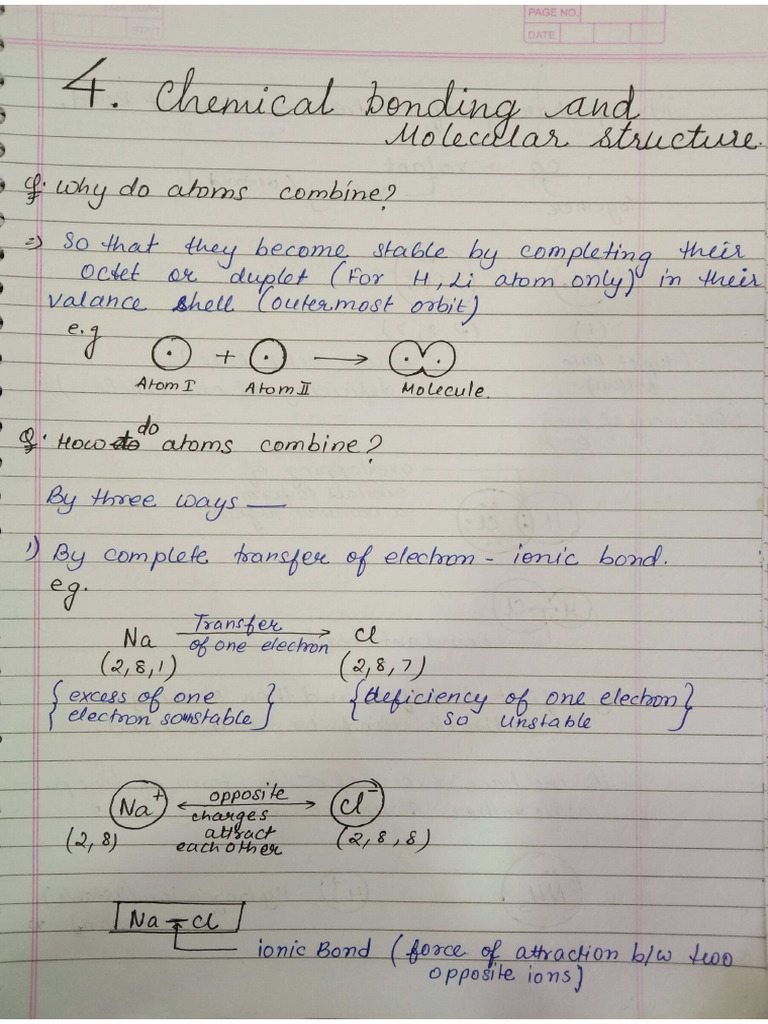 PAGE NO.
DATE
4. Chemical bonding and
Molecular structure.
Q. Why do atoms combine?
⇒ So that they become stable by completing their
octet or duplet (For H, Li atom only) in their
valance shell (outermost orbit)
e.g
+ →
Atom I Atom II Molecule.
Q. How do atoms combine?
By three ways —
1) By complete transfer of electron - ionic bond.
eg.
Na Transfer of one electron → Cl
(2,8,1) (2,8,7)
{excess of one
electron so unstable}
{deficiency of one electron
so unstable}
Na⁺ ↔ Cl⁻
opposite
charges
attract
each other
(2,8) (2,8,8)
Na–Cl
ionic Bond (force of attraction b/w two
opposite ions)